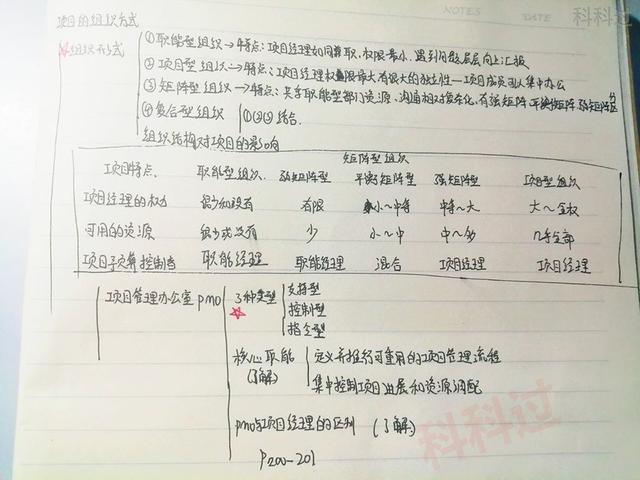 NOTES
DATE
科科过
项目的组织方式
☆组织形式
①职能型组织→特点:项目经理如同兼职,权限最小,遇到问题层层向上汇报
②项目型组织→特点:项目经理权限最大有很大的独立性—项目成员团队集中办公
③矩阵型组织→特点:共享职能型部门资源,沟通相对复杂化,有强矩阵,平衡矩阵,弱矩阵之分
④复合型组织 ①②③结合.
组织结构对项目的影响
矩阵型组织
项目特点. 职能型组织. 弱矩阵型 平衡矩阵型 强矩阵型 项目型组织
项目经理的权力 很少和没有 有限 小~中等 中等~大 大~全权
可用的资源 很少或没有 少 小~中 中~多 几乎全部
项目予算控制者 职能经理 职能经理 混合 项目经理 项目经理
项目管理办公室pmo
☆3种类型
支持型
控制型
指令型
核心职能(了解)
定义并推行可重用的项目管理流程
集中控制项目进展和资源调配
pmo与项目经理的区别 (了解)
P200-201
科科过